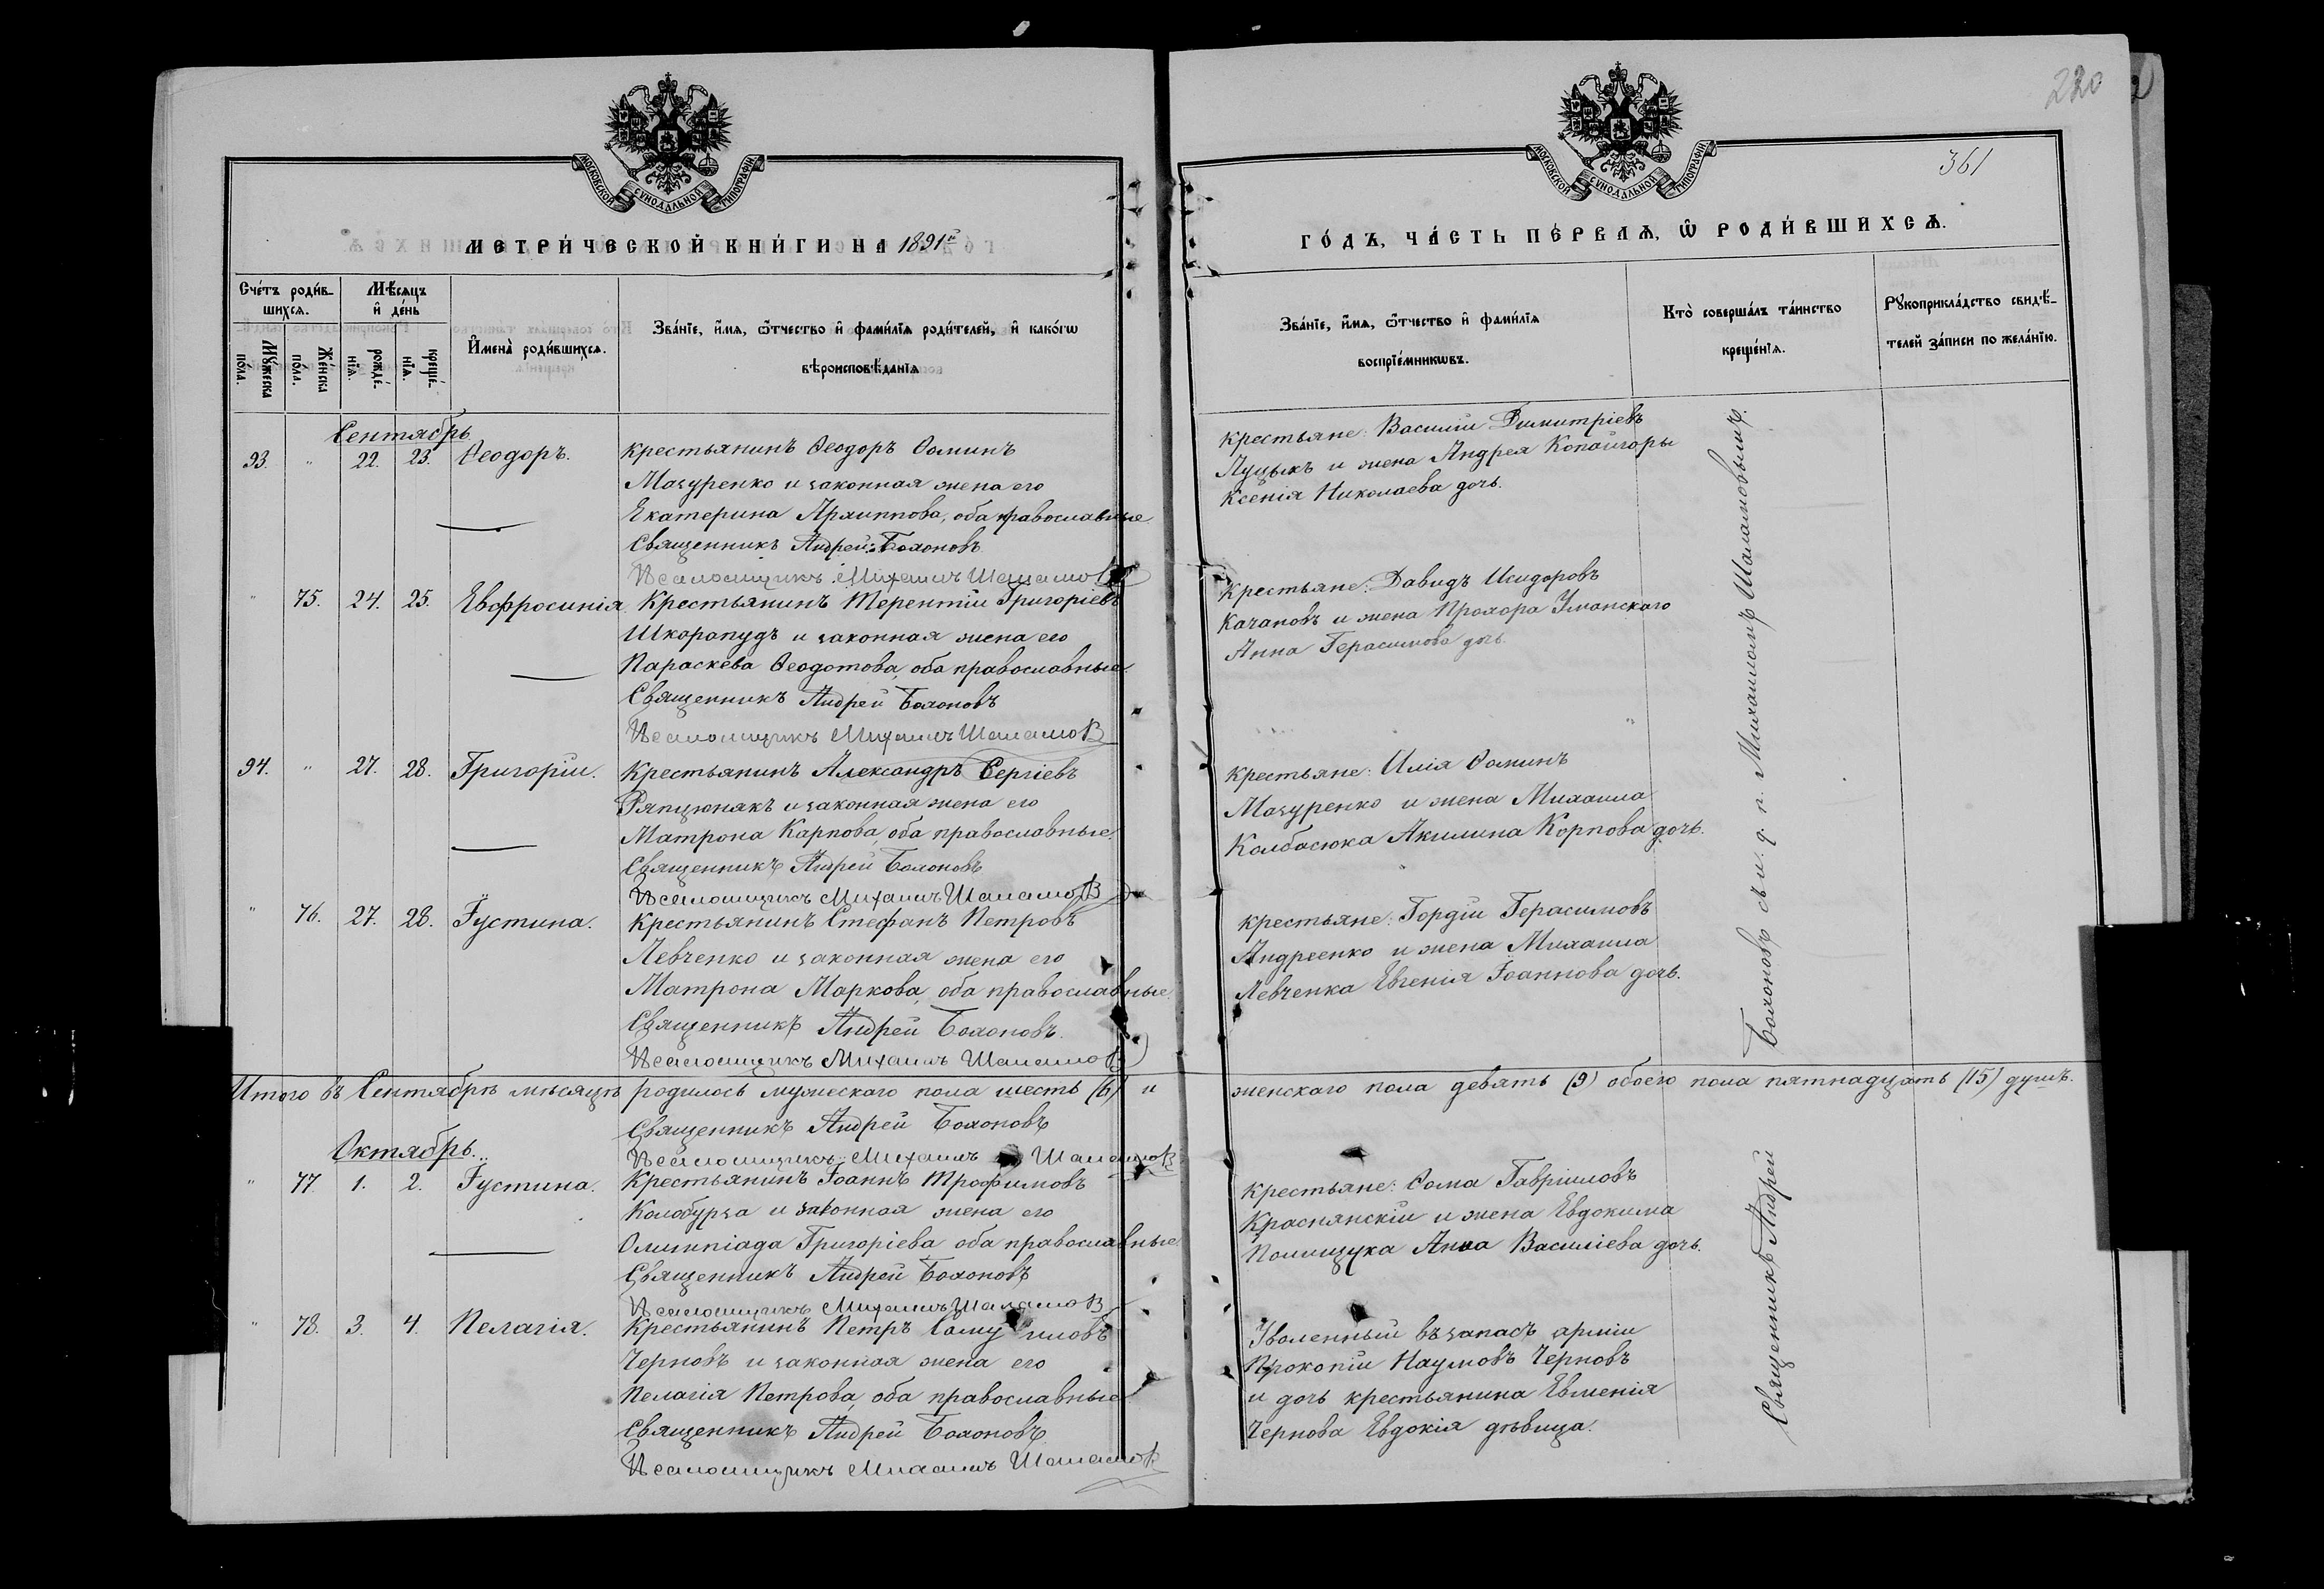 220
361
МОСКОВСКОЙ СѴНОДАЛЬНОЙ ТИПОГРАФІИ
МОСКОВСКОЙ СѴНОДАЛЬНОЙ ТИПОГРАФІИ
МЕТРИ́ЧЕСКОЙ КНИ́ГИ НА 1891й
ГО́ДЪ, ЧА́СТЬ ПЕ́РВАѦ, Ѿ РОДИ́ВШИХСѦ.
Сче́тъ роди́в-
шихсѧ.
Мꙋ́жеска по́ла.
Же́нска по́ла.
Мѣ́сѧцъ
и҆ де́нь
рожде́-
нїѧ.
креще́-
нїѧ.
И҆мена̀ роди́вшихсѧ.
Зва́нїе, и҆́мѧ, ѻ҆́тчество и҆ фами́лїѧ роди́телей, и҆ како́гѡ
вѣроисповѣ́данїѧ
Зва́нїе, и҆́мѧ, ѻ҆́тчество и҆ фами́лїѧ
воспрїе́мникѡвъ.
Кто̀ соверша́лъ та́инство
креще́нїѧ.
Рꙋкоприкла́дство свидѣ́-
телей за́писи по жела́нїю.
Сентябрь
93. " 22. 23. Ѳеодоръ.
Крестьянинъ Ѳеодоръ Ѳоминъ
Мазуренко и законная жена его
Екатерина Архиппова, оба православные
Священникъ Андрей Бохоновъ
Псаломщикъ Михаилъ Шаламов
Крестьяне: Василій Димитріевъ
Луцыкъ и жена Андрея Копайгоры
Ксенія Николаева дочь.
" 75. 24. 25. Евфросинія
Крестьянинъ Терентій Григоріевъ
Шкорапудъ и законная жена его
Параскева Ѳеодотова, оба православные
Священникъ Андрей Бохоновъ
Псаломщикъ Михаилъ Шаламов
Крестьяне: Давидъ Исидоровъ
Качановъ и жена Прохора Уманскаго
Анна Герасимова дочь.
94. " 27. 28. Григорій.
Крестьянинъ Александръ Сергіевъ
Ряпцюнякъ и законная жена его
Матрона Карпова, оба православные.
Священникъ Андрей Бохоновъ
Псаломщикъ Михаилъ Шаламов
Крестьяне: Илія Ѳоминъ
Мазуренко и жена Михаила
Колбасюка Акилина Корпова дочь.
" 76. 27. 28. Іустина.
Крестьянинъ Стефанъ Петровъ
Левченко и законная жена его
Матрона Маркова, оба православные.
Священникъ Андрей Бохоновъ
Псаломщикъ Михаилъ Шаламов
Крестьяне: Гордій Герасимовъ
Андреенко и жена Михаила
Левченка Евгенія Іоаннова дочь.
Итого въ Сентябрѣ мѣсяцѣ родилось мужескаго пола шесть (6) и женскаго пола девять (9) обоего пола пятнадцать (15) душъ.
Священникъ Андрей Бохоновъ
Псаломщикъ Михаилъ Шаламов
Октябрь.
" 77. 1. 2. Іустина.
Крестьянинъ Іоаннъ Трофимовъ
Колобурза и законная жена его
Олимпіада Григоріева оба православные
Священникъ Андрей Бохоновъ
Псаломщикъ Михаилъ Шаламов
Крестьяне: Ѳома Гавріиловъ
Краснянскій и жена Евдокима
Полищука Анна Василіева дочь.
" 78. 3. 4. Пелагія.
Крестьянинъ Петръ Самуиловъ
Черновъ и законная жена его
Пелагія Петрова, оба православные
Священникъ Андрей Бохоновъ
Псаломщикъ Михаилъ Шаламов
Уволенный въ запасъ арміи
Прокопій Наумовъ Черновъ
и дочь крестьянина Евменія
Чернова Евдокія дѣвица.
Священникъ Андрей Бохоновъ съ и. д. п. Михаиломъ Шаламовымъ.